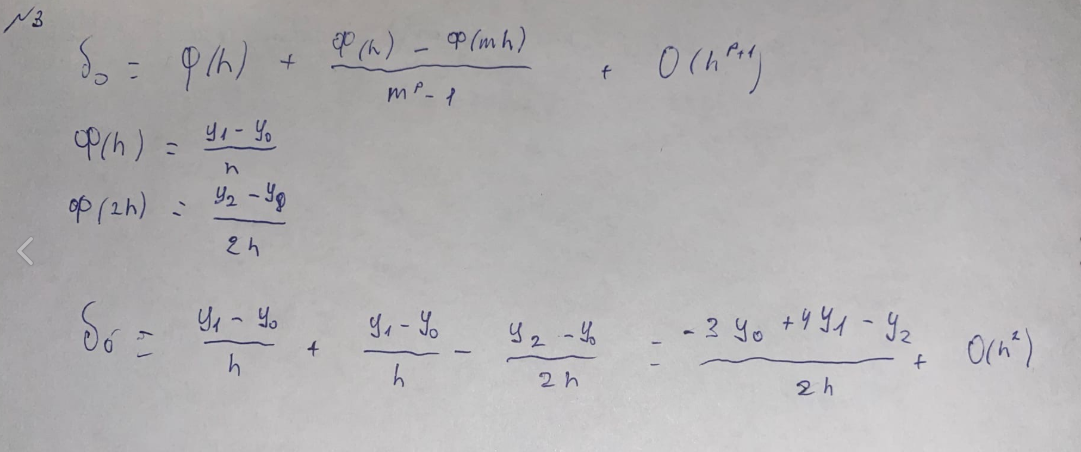 №3
δ₀ = φ(h) + (Ф(h) - Ф(mh))/(mᵖ - 1) + O(hᵖ⁺¹)
Ф(h) = (y₁ - y₀)/h
Ф(2h) = (y₂ - y₀)/2h
δ₀ = (y₁ - y₀)/h + (y₁ - y₀)/h - (y₂ - y₀)/2h = (-3y₀ + 4y₁ - y₂)/2h + O(h²)